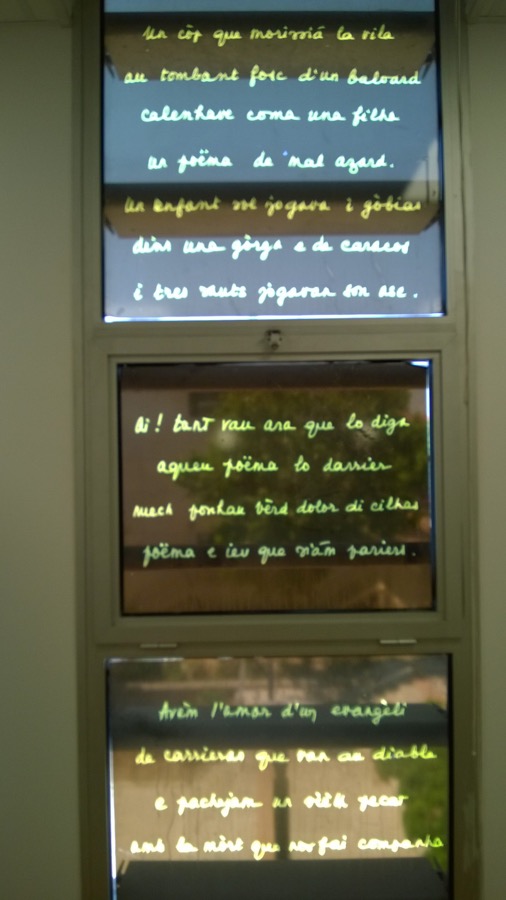 Un còp que moririá la vila
au tombant fosc d'un balouard
calenhave coma una filha
un poëma de mal azard.
Un enfant sol jogava i gòbias
dins una gòrga e de caracos
i tres sauts jogavan son ase.
Ai! tant vau ara que lo diga
aqueu poëma lo darrier
mech ponhau vèrd dolor di cilhas
poëma e ieu que n'iam pariers.
Avèm l'amor d'un evangèli
de carrieras que van au diable
e pachejam un vièlh pecat
amb la mòrt que nos fai companha